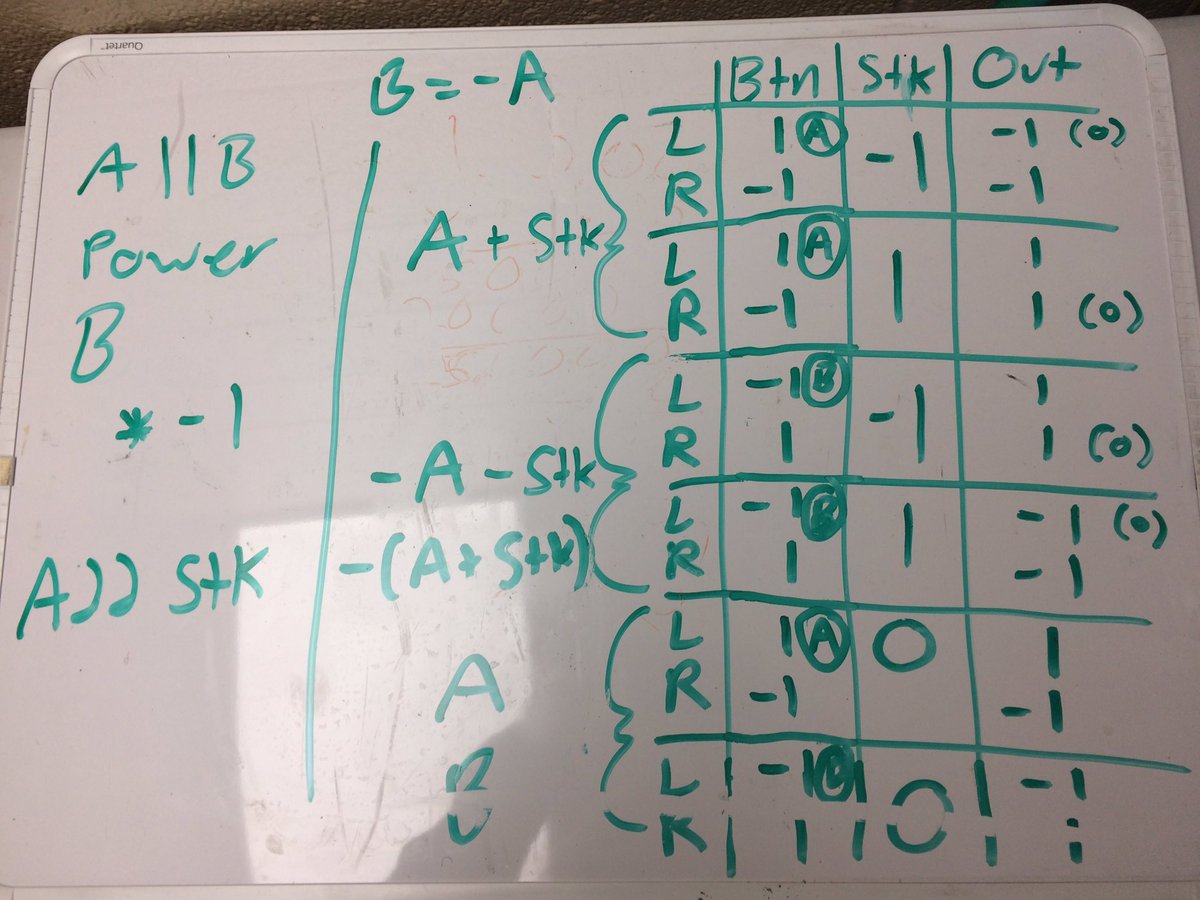 Quartet
B = -A
A || B
Power
B
* -1
Add Stk
A + Stk
-A - Stk
-(A + Stk)
A
B
Btn Stk Out
L 1 (A) -1 -1 (0)
R -1 -1
L 1 (A) 1 1
R -1 1 (0)
L -1 (B) -1 1
R 1 1 (0)
L -1 (B) 1 -1 (0)
R 1 -1
L 1 (A) 0 1
R -1 -1
L -1 (B) 0 -1
R 1 1